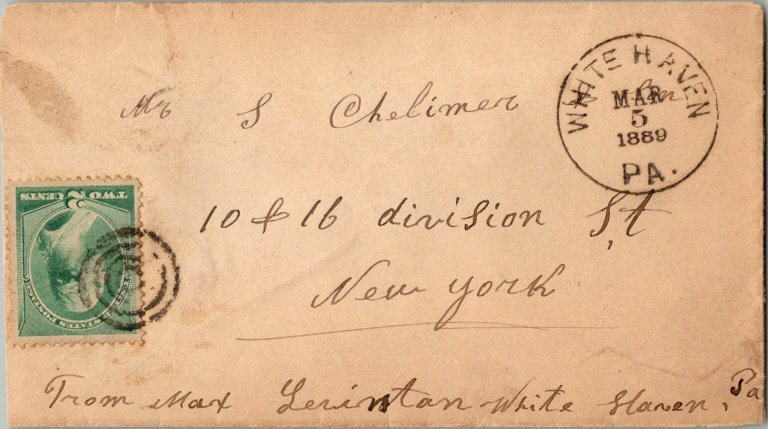 WHITE HAVEN
MAR
5
1889
PA.
Mr S Chelimer
10 & 16 division St
New York
From Max Levintan White Haven, Pa
TWO 2 CENTS
UNITED STATES POSTAGE